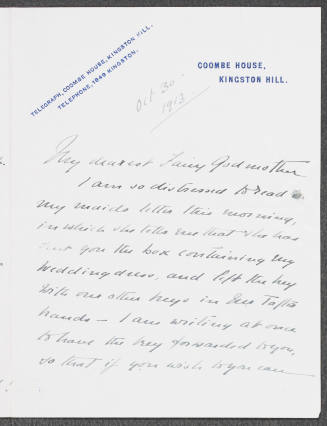 TELEGRAPH, COOMBE HOUSE, KINGSTON HILL.
TELEPHONE, 1849 KINGSTON.
COOMBE HOUSE,
KINGSTON HILL.
Oct 30
1913.
My dearest Fairy Godmother
I am so distressed to read
my maids letter this morning,
in which she tells me that she has
sent you the box containing my
Wedding dress, and left the key
with one other keys in Mrs Tafts
hands – I am writing at once
to have the key forwarded to you,
so that if you wish to you can